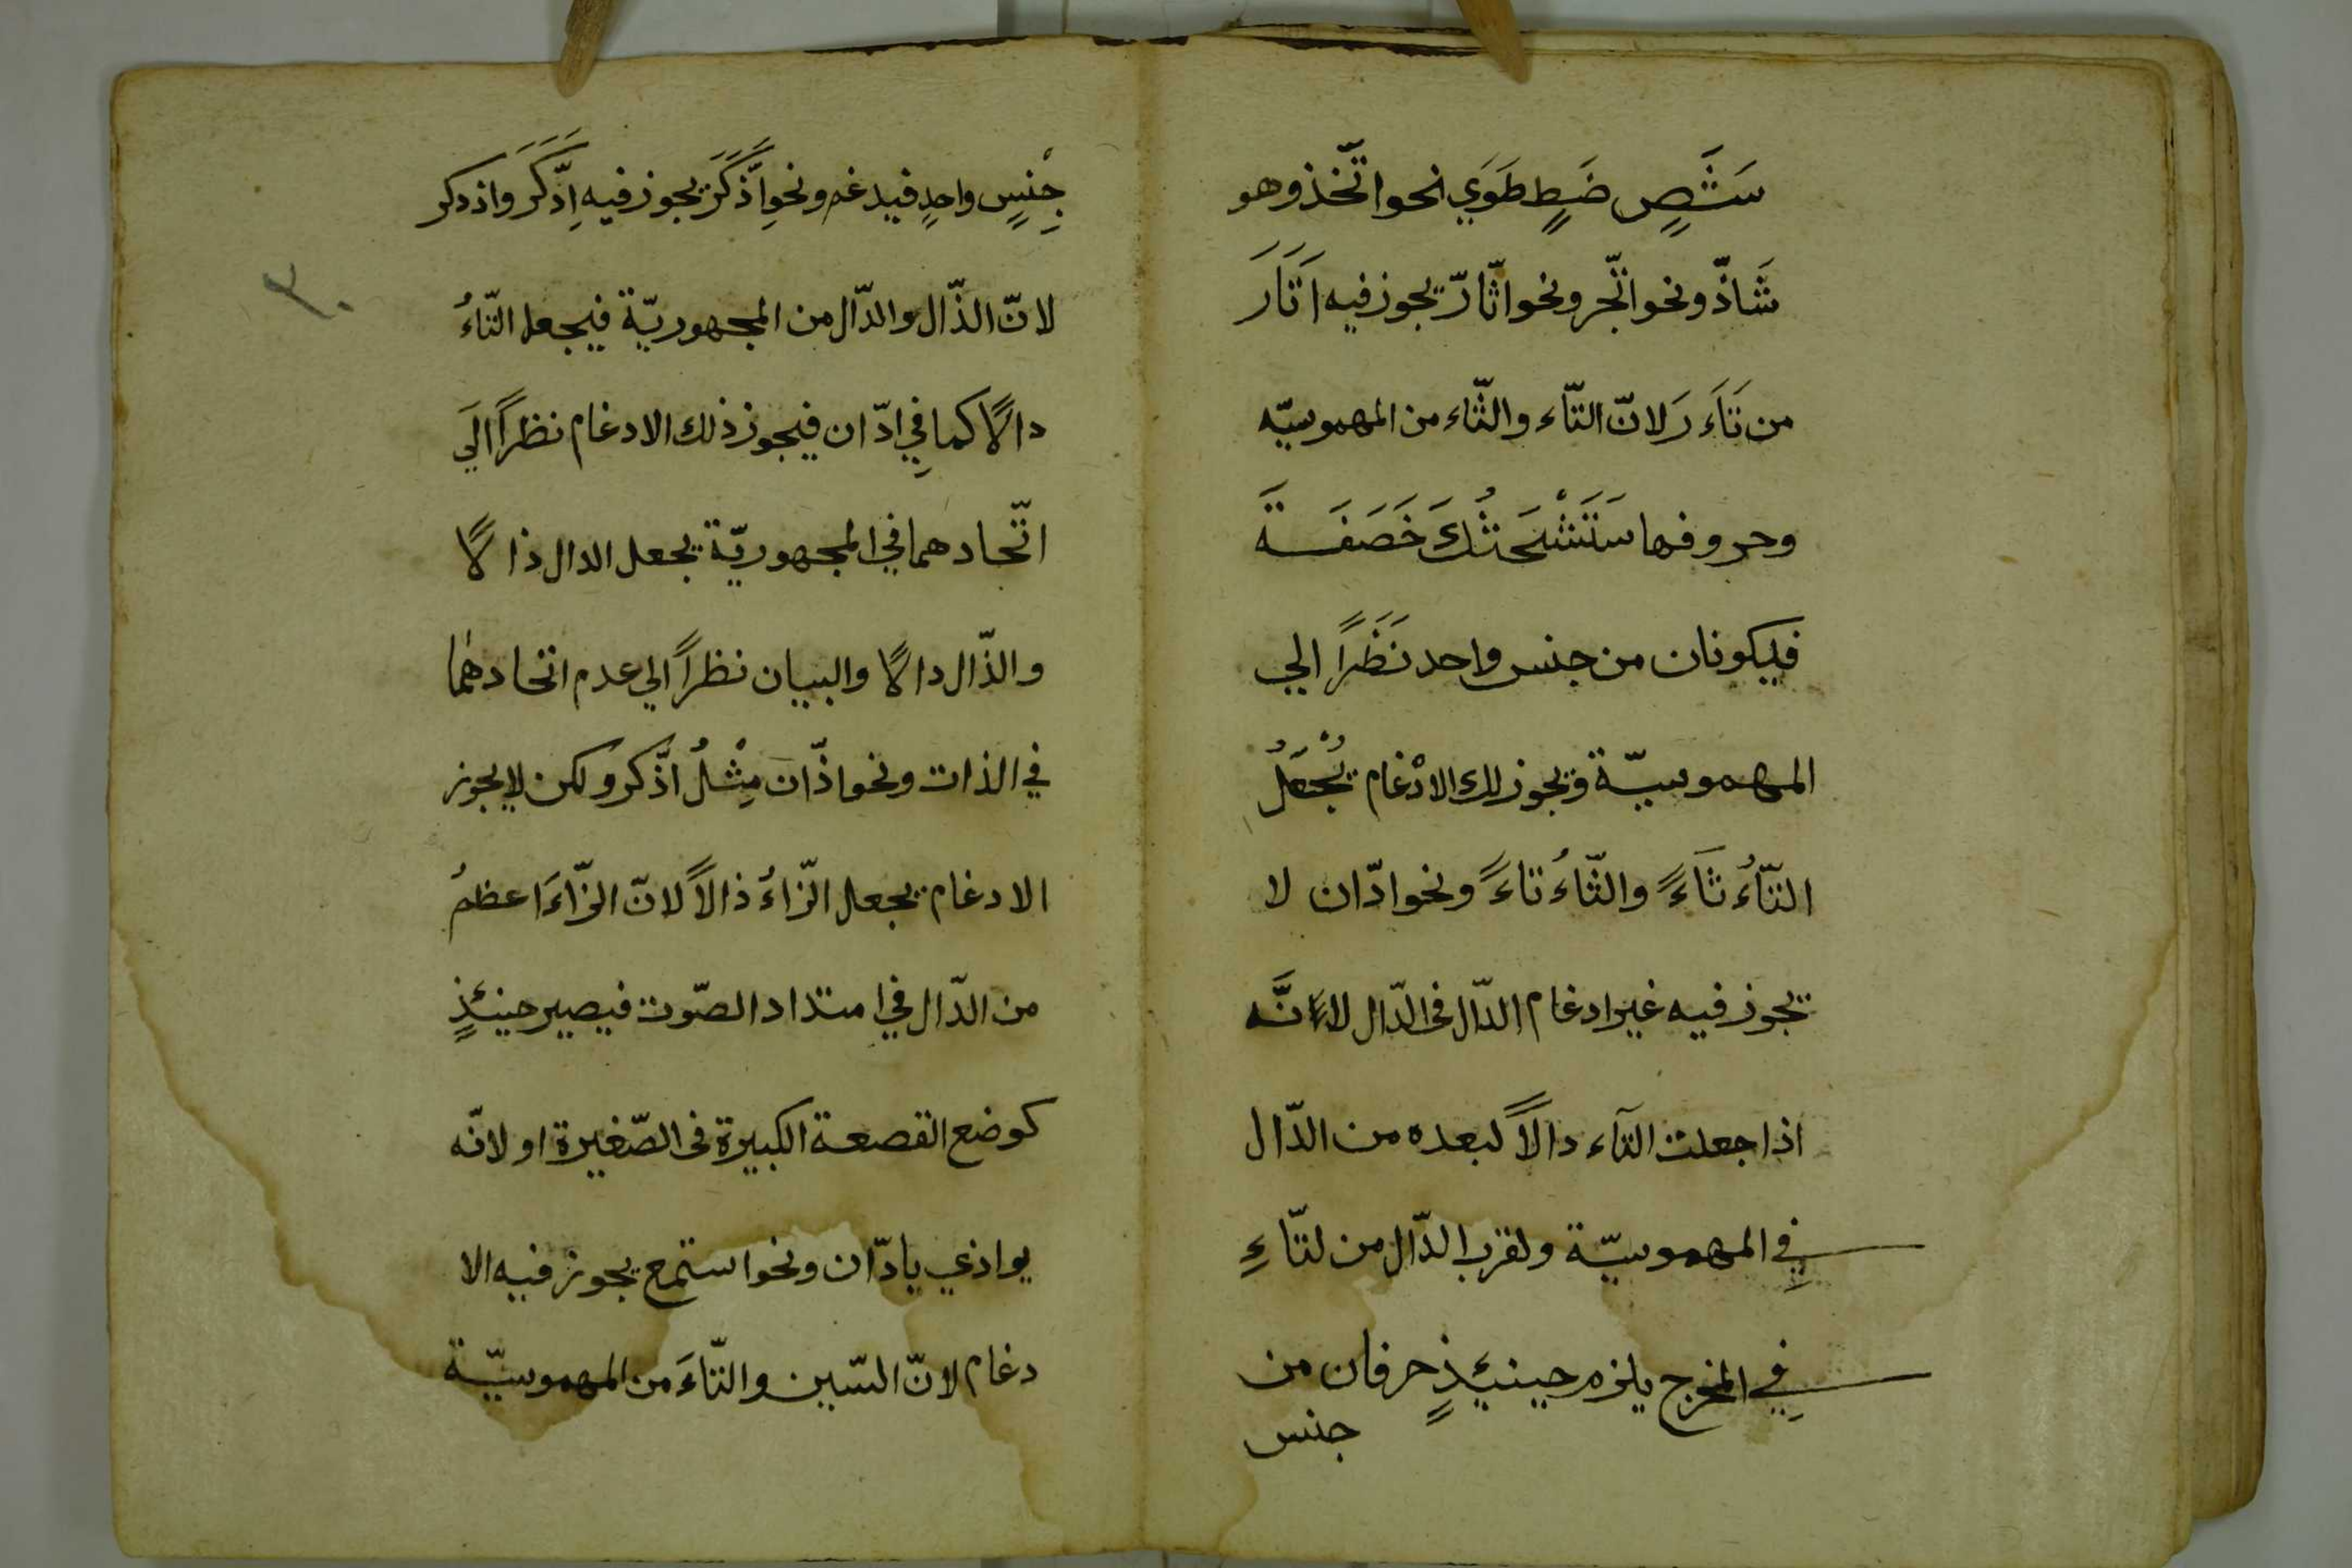 سَتَّصٍ ضَطٍ طَوَي نحو اتّخذ وهو
شَاذّ ونحو اتّجر ونحو اثّارّ يجوز فيه اَتَّارَ
من ثَاَءَ رَ لانّ التّاء والثّاء من المهموسيّه
وحروفها سَتَشْحَثُكَ خَصَفَةَ
فيكونان من جنس واحد نَظَرًا الي
المهموسيّة ويجوز لك الادْغام يُجْعَلُ
التّاَءُ ثَاءً والثّاءُ تاءً ونحو ادّان لا
يجوز فيه غير ادغام الدّال في الدّال لاءنَّه
اذا جعلت التآء دالًا لبعده من الدّال
في المهموسيّة ولقرب الدّال من لتّاءِ
في المخرج يلزم حينيئذٍ حرفان من
جنس
جِنْسٍ واحدٍ فيدغم ونحو اِذَّكَرَ يجوز فيه اِدَّكَرَ واذدكر
لانّ الذّال والدّال من المجهوريّة فيجعل التّاءُ
دالًا كما فِي ادّان فيجوز ذلك الادغام نظرًا الَي
اتّحادهما في المجهوريّة يجعل الدال ذالًا
والذّال دالًا والبيان نظرًا الي عدم اتحادهما
في الذات ونحو اذّان مِثْلُ اذّكر ولكن لا يجوز
الادغام يجعل الزّاءُ ذالًا لانّ الزّاءَ اعظمُ
من الدّال في امتداد الصّوت فيصير حينئذٍ
كوضع القصعة الكبيرة في الصّغيرة او لانّه
يواذي بادّان ونحو استمع يجوز فيه الا
دغام لانّ السّين والتّاءَ من المهموسيّة
٣٠